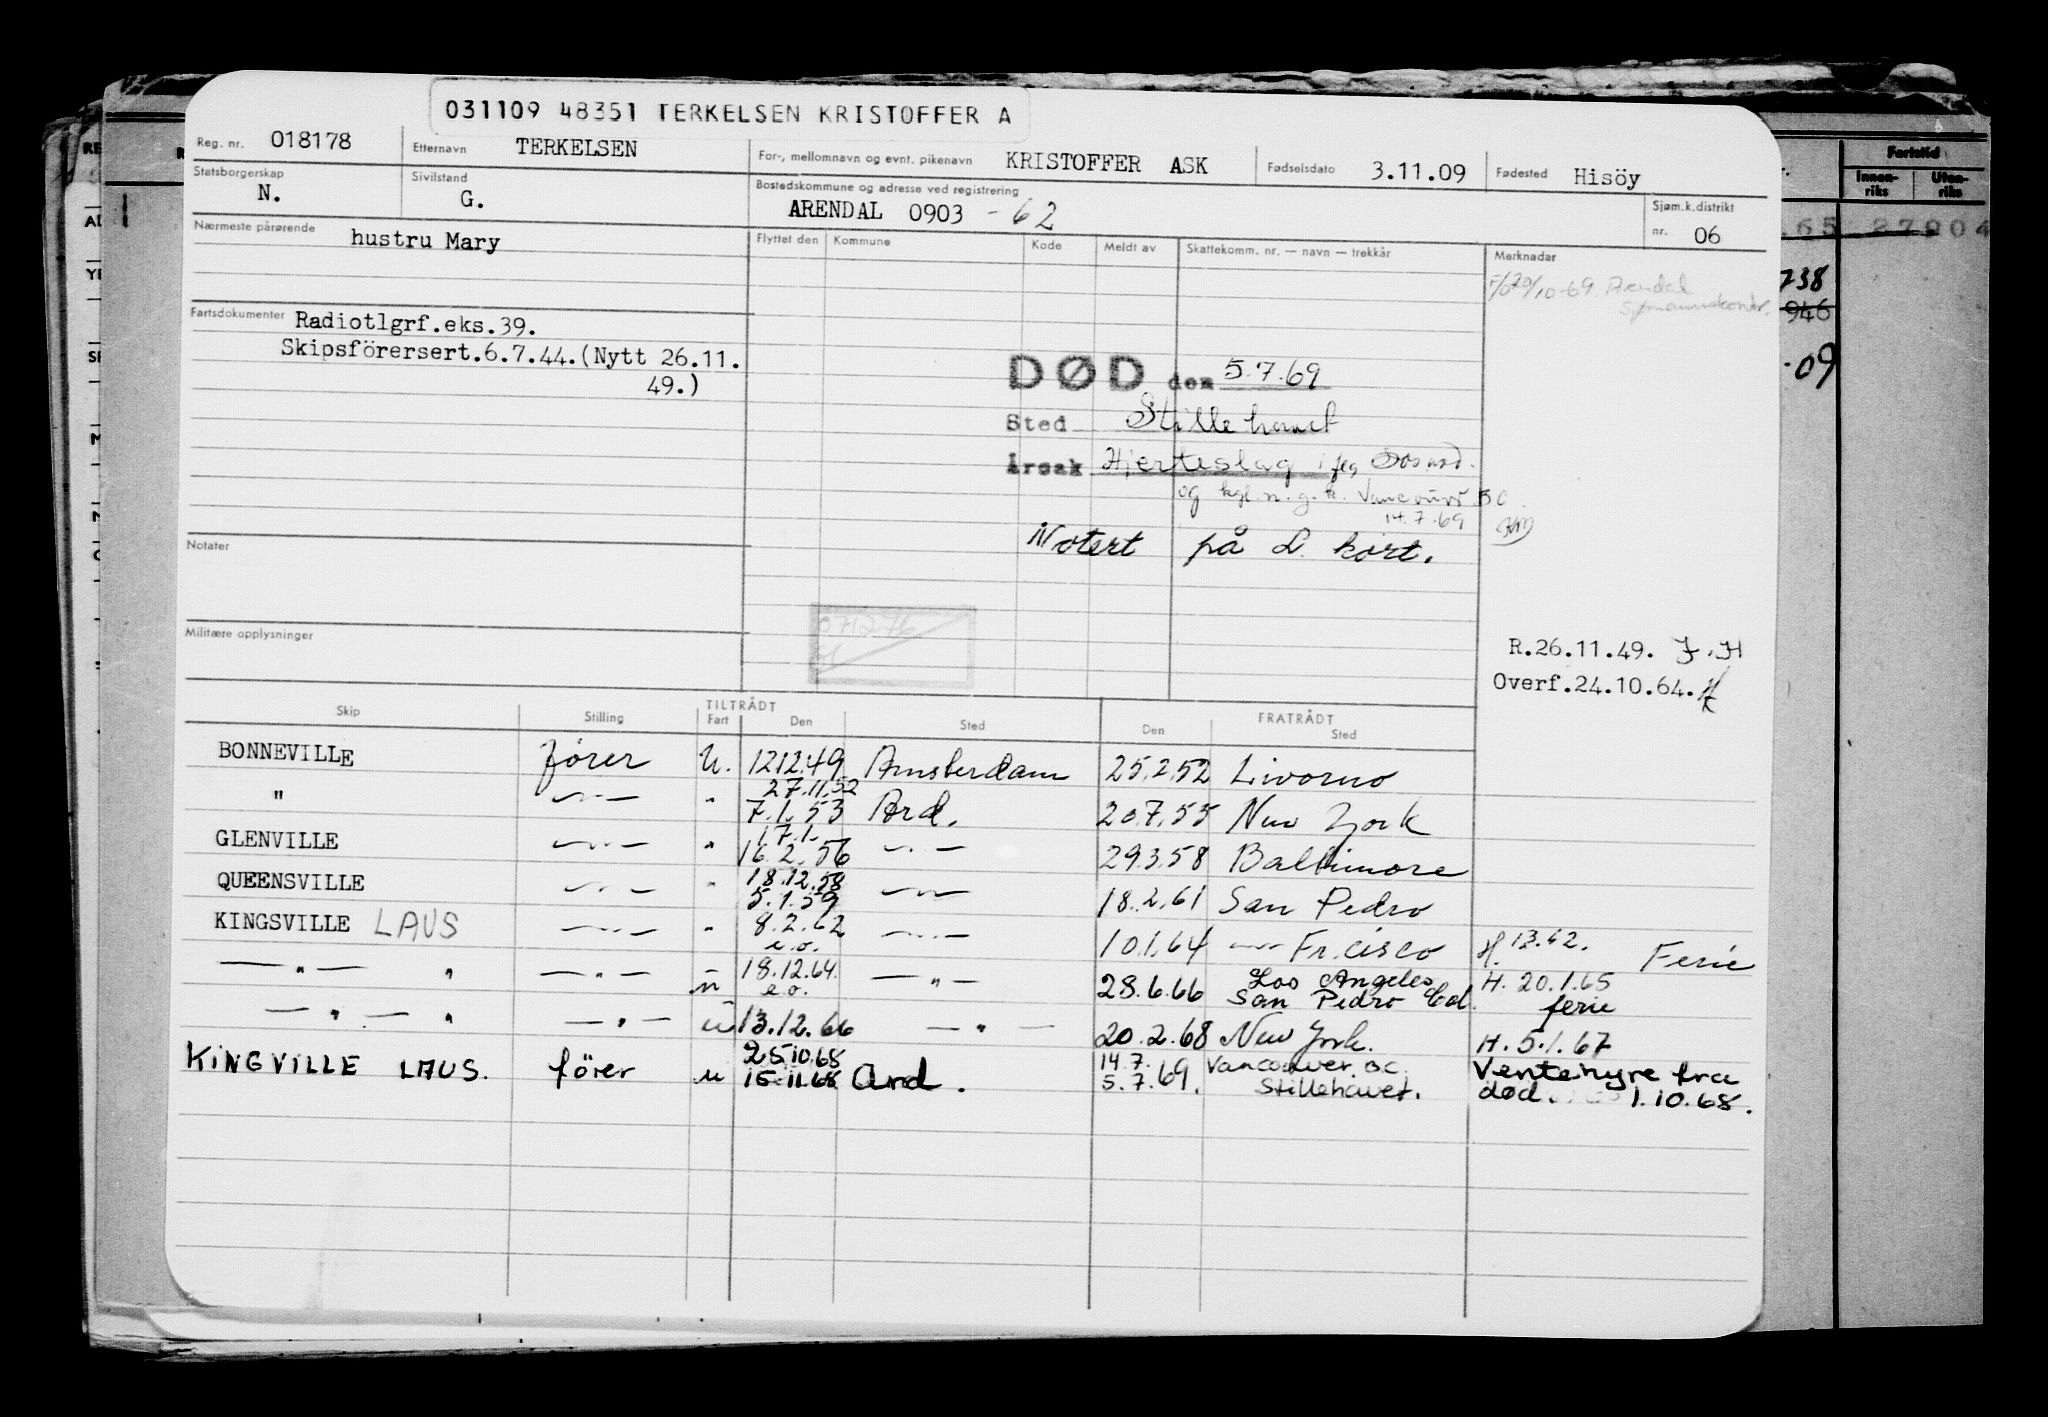 031109 48351 TERKELSEN KRISTOFFER A
Reg. nr. 018178 Etternavn TERKELSEN For-, mellomnavn og evnt. pikenavn KRISTOFFER ASK Fødselsdato 3.11.09 Fødested Hisöy
Statsborgerskap N. Sivilstand G. Bostedskommune og adresse ved registrering ARENDAL 0903 -62 Sjøm.k.distrikt nr. 06
Nærmeste pårørende hustru Mary
Flyttet den Kommune Kode Meldt av Skattekomm. nr. — navn — trekkår Merknader
10-69 Arendal
Fartsdokumenter Radiotlgrf.eks.39.
Skipsförersert.6.7.44.(Nytt 26.11.
49.)
DØD den 5.7.69
Sted Stillehavet
Årsak Hjerteslag
og kgl. n. g. k. Vancouver BC
14.7.69
Notert på L. kort.
Notater
071276
Militære opplysninger
R.26.11.49. J.H
Overf.24.10.64.
Skip Stilling TILTRÅDT Fart Den Sted FRATRÅDT Den Sted
BONNEVILLE fører U. 12.12.49 Amsterdam 25.2.52 Livorno
" —"— " 27.11.52 7.1.53 Ard. 20.7.55 New York
GLENVILLE —"— " 17.1. 16.2.56 —"— 29.3.58 Baltimore
QUEENSVILLE —"— " 18.12.58 5.1.59 —"— 18.2.61 San Pedro
KINGSVILLE LAUS —"— " 8.2.62 e.o. —"— 10.1.64 —"— Fr.cisco H. 13.42. Ferie
—"— " —"— u 18.12.64. e.o. —"— 28.6.66 Los Angeles San Pedro Cal. H. 20.1.65 ferie
—"— " —"— u 13.12.66 —"— 20.2.68 New York. H. 5.1.67
KINGVILLE LAUS. förer u 25.10.68 15.11.68 Ard. 14.7. 5.7.69. Vancouver. BC. Stillehavet. Ventehyre fra død. 1.10.68.
Fartstid
Innen-riks Uten-riks
65 27904
738
946
09